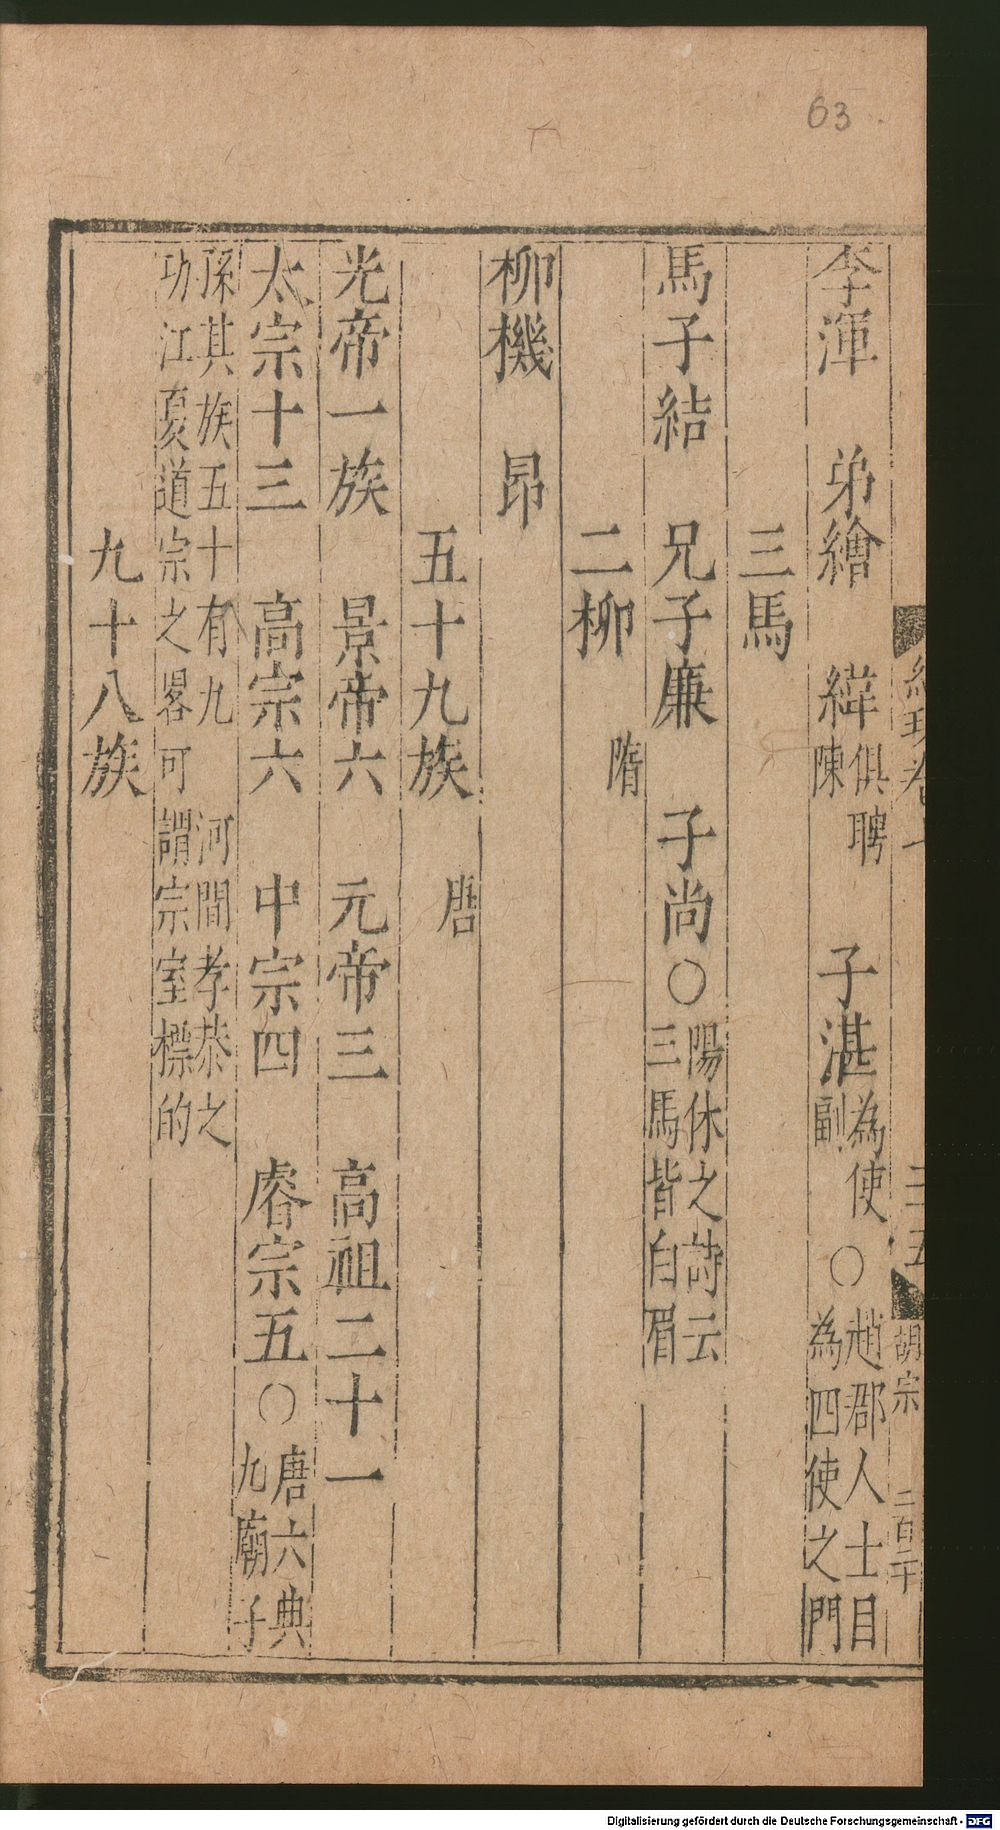 63
三五
胡宗
二百二十
李渾　弟繪　緯俱聘陳　子湛為使副　○趙郡人士目為四使之門
三馬
馬子結　兄子廉　子尚○陽休之詩云三馬皆白眉
二柳　隋
柳機　昂
五十九族　唐
光帝一族　景帝六　元帝三　高祖二十一
太宗十三　高宗六　中宗四　睿宗五○唐六典九廟子
孫其族五十有九　河間孝恭之功江夏道宗之畧可謂宗室標的
九十八族
Digitalisierung gefördert durch die Deutsche Forschungsgemeinschaft - DFG